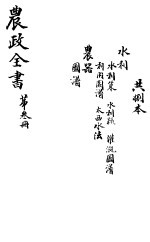 共捌本
水利
水利策 水利疏 灌溉圖譜
利用圖譜 太西水法
農器
圖譜
農政全書 第叁冊